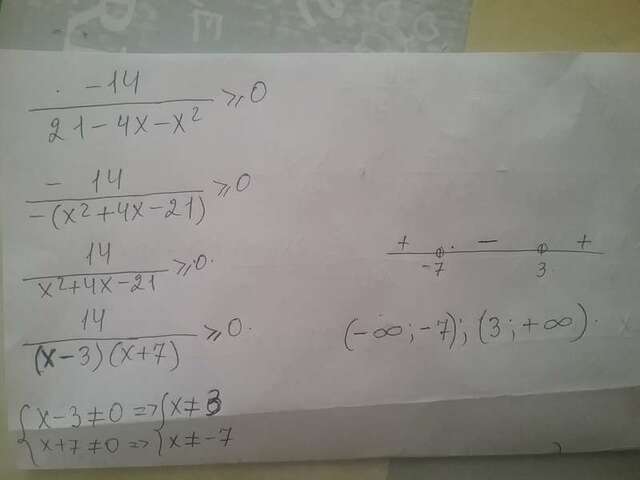 -14 / (21-4x-x²) ≥ 0
- 14 / (-(x²+4x-21)) ≥ 0
14 / (x²+4x-21) ≥ 0.
14 / ((x-3)(x+7)) ≥ 0.
{x-3≠0 => {x≠3
{x+7≠0 => {x≠-7
+ - +
-7 3
(-∞;-7);(3;+∞).